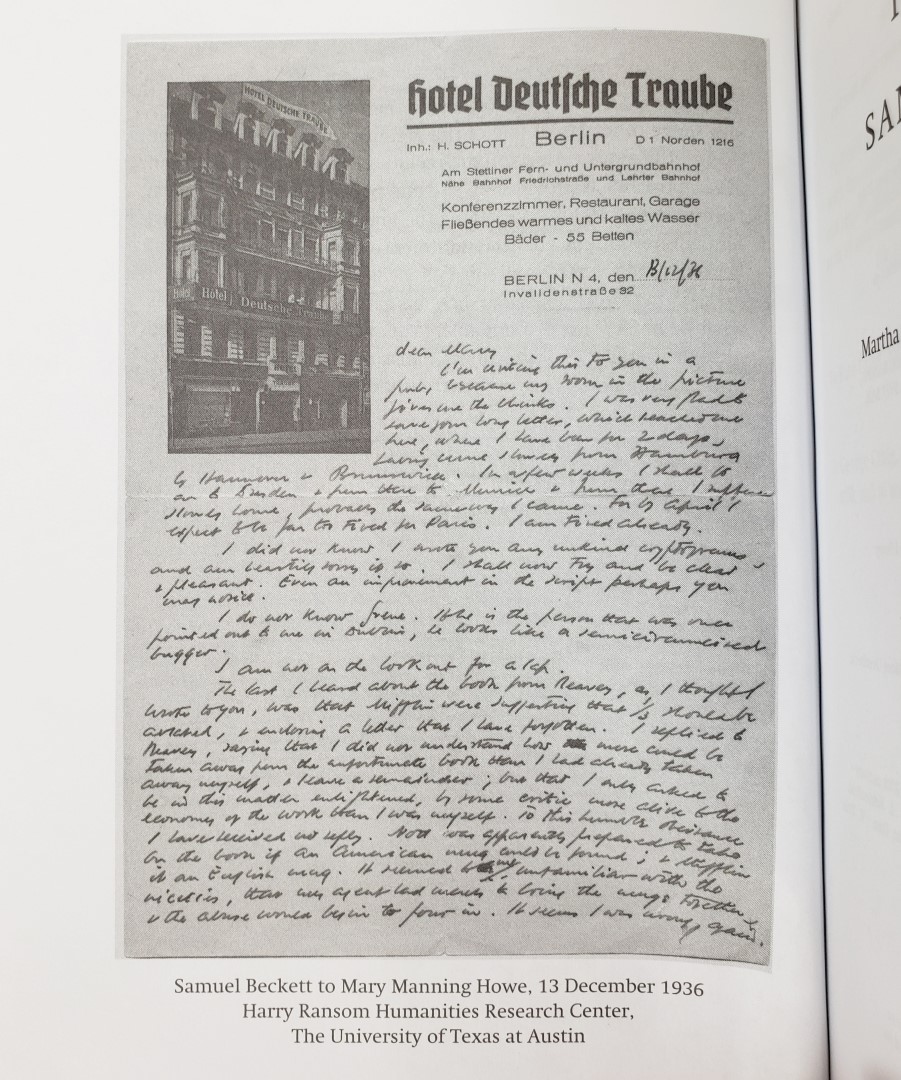 HOTEL DEUTSCHE TRAUBE
Hotel Deutsche Traube
Hotel Deutsche Traube
Inh.: H. SCHOTT Berlin D 1 Norden 1216
Am Stettiner Fern- und Untergrundbahnhof
Nähe Bahnhof Friedrichstraße und Lehrter Bahnhof
Konferenzzimmer, Restaurant, Garage
Fließendes warmes und kaltes Wasser
Bäder - 55 Betten
BERLIN N 4, den 13/12/36
Invalidenstraße 32
dear Mary
I'm writing this to you in a
because my room in the picture
gives me the . I was very glad to
have your long letter, which reached me
here, where I have been for 2 days,
having come slowly from Hamburg
by Hannover & Brunswick. In a few weeks I shall go
on to Dresden & from there to Munich & from there I suppose
slowly home, probably the same way I came. For by April I
expect to be far too tired for Paris. I am tired already.
I did not know I wrote you any unkind cryptograms
and am heartily sorry if so. I shall now try and be clear
& pleasant. Even an improvement in the script perhaps you
may notice.
I do not know . If he is the person that was once
pointed out to me in Dublin, he looks like a semicircumcised
bugger.
I am not on the look out for a lap.
The last I heard about the book from Reavey, as I thought I
wrote to you, was that Mifflin were suggesting that should be
, & enclosing a letter that I have forgotten. I replied to
Reavey, saying that I did not understand how more could be
taken away from the unfortunate book than I had already taken
away myself, & leave a remainder; but that I only asked to
be in this matter enlightened, by some critic more alive to the
economy of the work than I was myself. To this humble obeisance
I have received no reply. Nott was apparently prepared to take
on the book if an American mug could be found; & Mifflin
if an English mug. It seemed to me, unfamiliar with the
niceties, that my agent had merely to bring the mugs together
& the abuse would begin to pour in. It seems I was wrong again.
Samuel Beckett to Mary Manning Howe, 13 December 1936
Harry Ransom Humanities Research Center,
The University of Texas at Austin
Martha